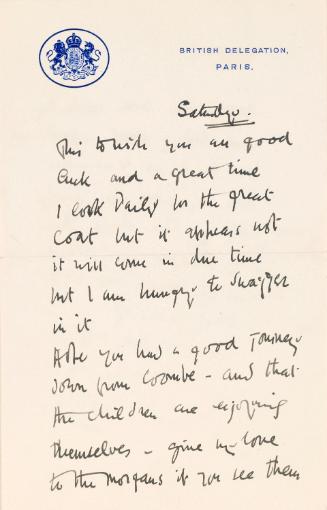 BRITISH DELEGATION,
PARIS.
Saturday.
This to wish you all good
luck and a great time
I look Daily for the great
coat but it appears not
it will come in due time
but I am hungry to swagger
in it
Hope you had a good Journey
down from Coombe - and that
the children are enjoying
themselves - give my love
to the Morgans if you see them